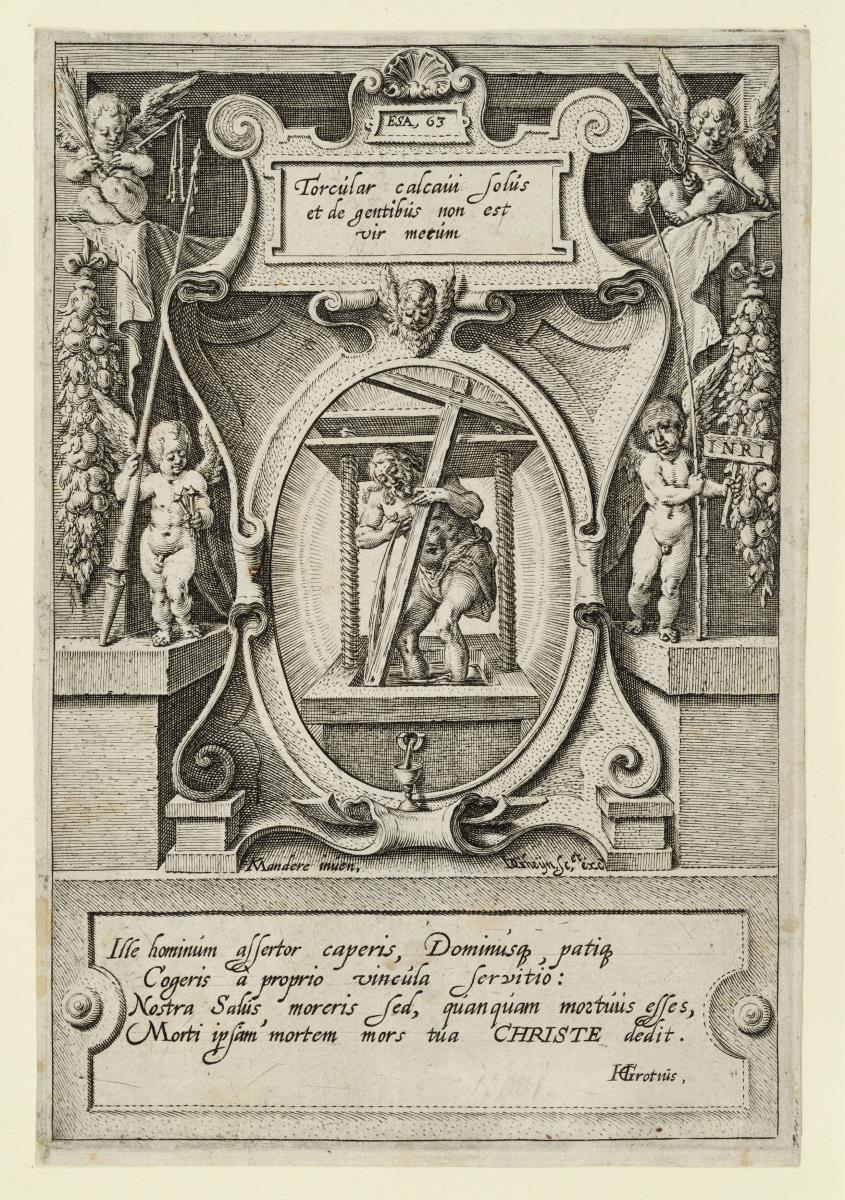 ESA, 63
Torcular calcaui solus
et de gentibus non est
vir mecum
INRI
Mandere inuen,
IDGheyn. Sc. et exc.
Ille hominum assertor caperis, Dominusq, patiq
Cogeris à proprio vincula servitio:
Nostra Salus moreris sed, quanquam mortuus esses,
Morti ipsam mortem mors tua CHRISTE dedit.
HGrotius,